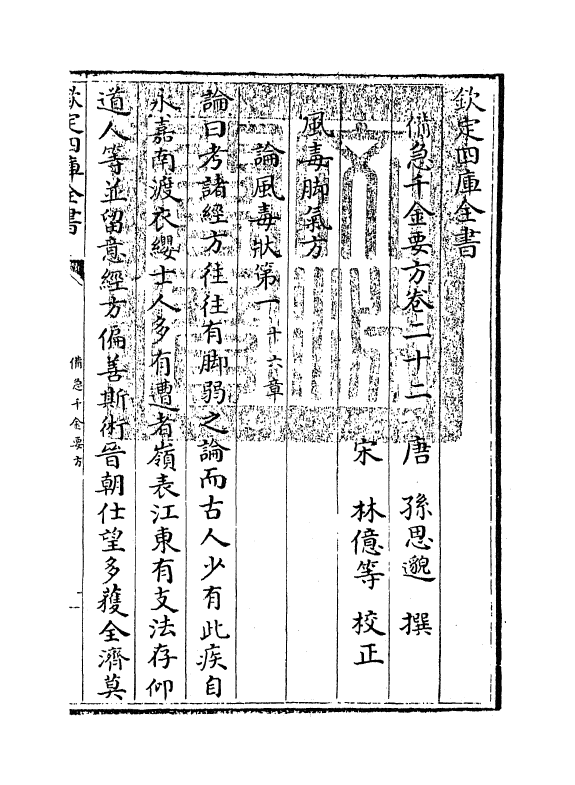 欽定四庫全書
備急千金要方卷二十二 唐 孫思邈 撰
宋 林億等 校正
風毒脚氣方
論風毒狀第一十六章
論曰考諸經方往往有脚弱之論而古人少有此疾自
永嘉南渡衣纓士人多有遭者嶺表江東有支法存仰
道人等並留意經方偏善斯術晉朝仕望多獲全濟莫
欽定四庫全書
備急千金要方
一